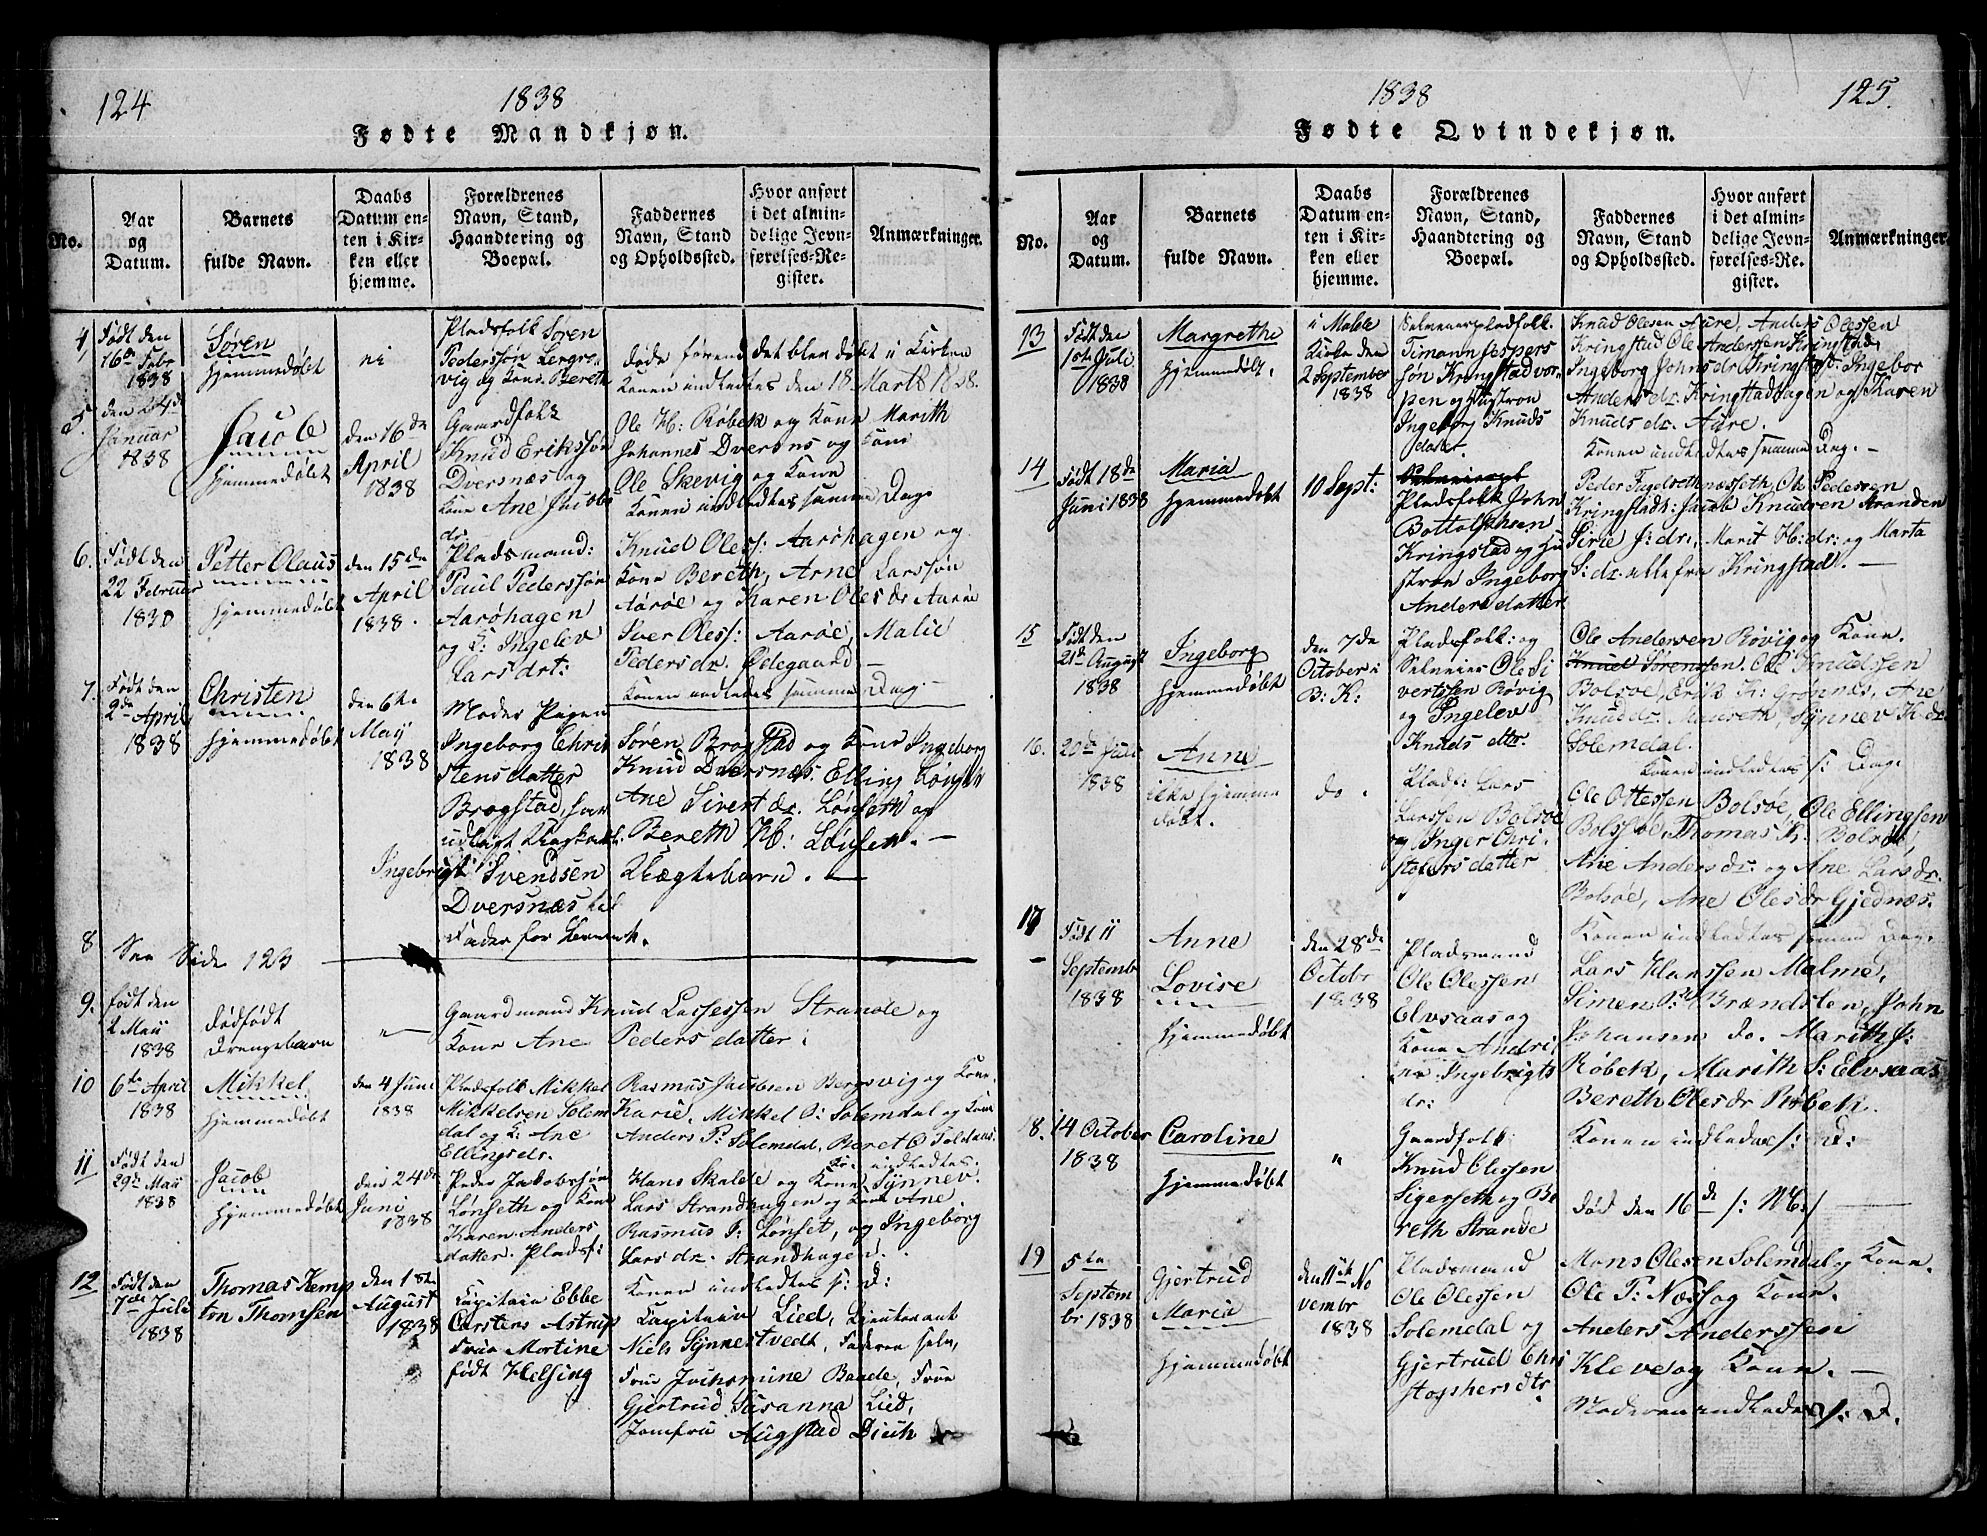 124
1838
Fødte Mandkjøn.
No.
Aar og Datum.
Barnets fulde Navn.
Daabs Datum enten i Kirken eller hjemme.
Forældrenes Navn, Stand, Haandtering og Boepæl.
Faddernes Navn, Stand og Opholdssted.
Hvor anført i det almindelige Jevnførelses-Register.
Anmærkninger.
4
Født den
16de Febr
1838
Søren
hjemmedøbt
Pladsfolk Søren
Pederssøn
vig og Kone Bereth
døde førend det blev døbt i Kirken
Konen indledtes den 18 Marts 1838.
5.
den 24de
Januar
1838
Jacob
hjemmedøbt
den 16de
April
1838
Gaardfolk
Knud Erikssøn
Dversnæs og
Kone Ane Jacobs
dr.
Ole H: Røbek og Kone Marith
Johannes Dversnæs og Kone
Ole Skevig og Kone
Konen indledtes samme Dag
6.
Født den
22 Februar
1838
Petter Olaus
hjemmedøbt
den 15de
April
1838.
Pladsmand:
Paul Pederssøn
Aarøhagen
og K: Ingelev
Lars drt:
Knud Oless: Aarøhagen og
Kone Bereth, Arne Larssøn
Aarøe og Karen Oles dr Aarøe
Iver Oless: Aarøe, Malie
Peders dr. Ødegaard —
Konen indledtes samme Dag.
7.
Født den
2de April
1838
Christen
hjemmedøbt
den 6te
May
1838
Moder Pigen
Ingeborg Chris
tensdatter
Bragstad, har
udlagt
Ingebrigt Svendsen
Dversnæs til
Fader for Barnet.
Søren Bragstad og Kone Ingeborg
Knud Dversnæs. Elling Lønset
Ane Sivert dr. Lønseth og
Bereth H: Lønset. —
Uægtebarn. —
8
See Side 123
9.
født den
2 Maii
1838
dødfødt
Drengebarn
Gaardmand Knud Lassessen Strande og
Kone Ane Peders datter:
10
6te April
1838
Mikkel
hjemmedøbt
den 4 Juni
1838
Pladsfolk Mikkel
Mikkelsen Solem
dal og K. Ane
Ellingsdr.
Rasmus Jacobsen Bergsvig og Kone
Karie, Mikkel O: Solemdal og Kone
Anders P: Solemdal, Beret O Soldaas:
Kone indledtes.
11
Født den
29de Maii
1838
Jacob
hjemmedøbt
den 24de
Juni
1838
Peder Jakobssøn
Lønseth og Kone
Karen Anders
datter. Pladsf:
Hans Skalde og Kone Synnev.
Lars Strandhagen og Kone Ane
Rasmus J: Lønset, og Ingeborg
Lars dr. Strandhagen.
Konen indledtes s: D:
12
Født den
7de Juli
1838
Thomas Kemp
ton Thomsen
den 1ste
August
1838
Capitain Ebbe
Carstens Astrup
Frue Mortine
født Helsing
Capitain Lied, Lieutenant
Niels Synnestvedt, Faderen selv,
Frue Jochomine Bande, Frue
Gjertrud Susanna Lied,
Jomfru Augstad
1838
125.
Fødte Qvindekjøn.
No.
Aar og Datum.
Barnets fulde Navn.
Daabs Datum enten i Kirken eller hjemme.
Forældrenes Navn, Stand, Haandtering og Boepæl.
Faddernes Navn, Stand og Opholdssted.
Hvor anført i det almindelige Jevnførelses-Register.
Anmærkninger
13
Født den
1ste Juli
1838
Margrethe
hjemmedøbt.
i Molde
Kirke den
2 September
1838
Timann Jespers
søn Kringstadvor
pen og Hustroe
Ingeborg Knuds
datter.
Knud Olesen Aure, Anders Olessen
Kringstad Ole Anderssen Kringstad,
Ingeborg Johns dr. Kringstad: Ingebor
Anders dr. Kringstadhagen og Karen
Knuds dr. Aure.
Konen indledtes samme Dag. —
14
Født 18de
Juni 1838
Maria
hjemmedøbt
10 Sept:
Pladsfolk John
Bottolphsen
Kringstad og Hu
stroe Ingeborg
Anders datter
Peder Fugelsethnæsseth, Ole Pedersen
Kringstads: Jacob Knudsen Stranden
Sirie J: dr:, Marit H: dr: og Marta
S: dr. alle fra Kringstad. —
15
Født den
21de August
1838
Ingeborg
hjemmedøbt
den 7de
October i
B: K:
Pladsfolk og
Selveier Ole Si
vertssen Røvig
og Ingelev
Knuds dtr.
Ole Andersen Røvig og Kone.
Knud Sørenssen. Ole Knudssen
Bolsøe, Erik K: Grønnes, Ane
Knuds dr. Synnev K dr.
Solemdal.
Konen indledtes s: Dag.
16.
20de Juli
1838
Anne
ikke hjemme
døbt.
do.
Plads: Lars
Larssen Bolsøe
og Inger Chri
stofersdatter
Ole Ottessen Bolsøe, Ole Ellingsen
Bolsøe, Thomas K: Bolsøe,
Ane Anders dr. og Ane Lars dr.
Bolsøe, Ane Oles dr Gjednæs.
Konen indledtes samme Dag.
17
Født 11
Septembr
1838
Anne
Lovise
hjemmedøbt
den 28de
Octobr
1838
Pladsmand
Ole Olessen
Elvsaas og
Kone Andri
ne Ingebrigts
dr:
Lars Hanssen Malme,
Simen P: Brændslen, John
Johansen do. Marith J:
Røbek, Marith S: Elvsaas
Bereth Olesdr Røbek.
Konen indledes s: D:
18.
14 October
1838
Caroline
hjemmedøbt
"
Gaardfolk
Knud Olessen
Sigerseth og Be
reth Strande
død den 16de s: M:
19
5te
Septem
br 1838
Gjertrud
Maria
hjemmedøbt
den 11te No
vembr
1838
Pladsmand
Ole Olessen
Solemdal og
Gjertrud Chri
stophers dtr
Mons Olesen Solemdal og Kone.
Ole P: Næss og Kone.
Anders Anderssen
Kleve og Kone. —
Moderen indledes s: D.